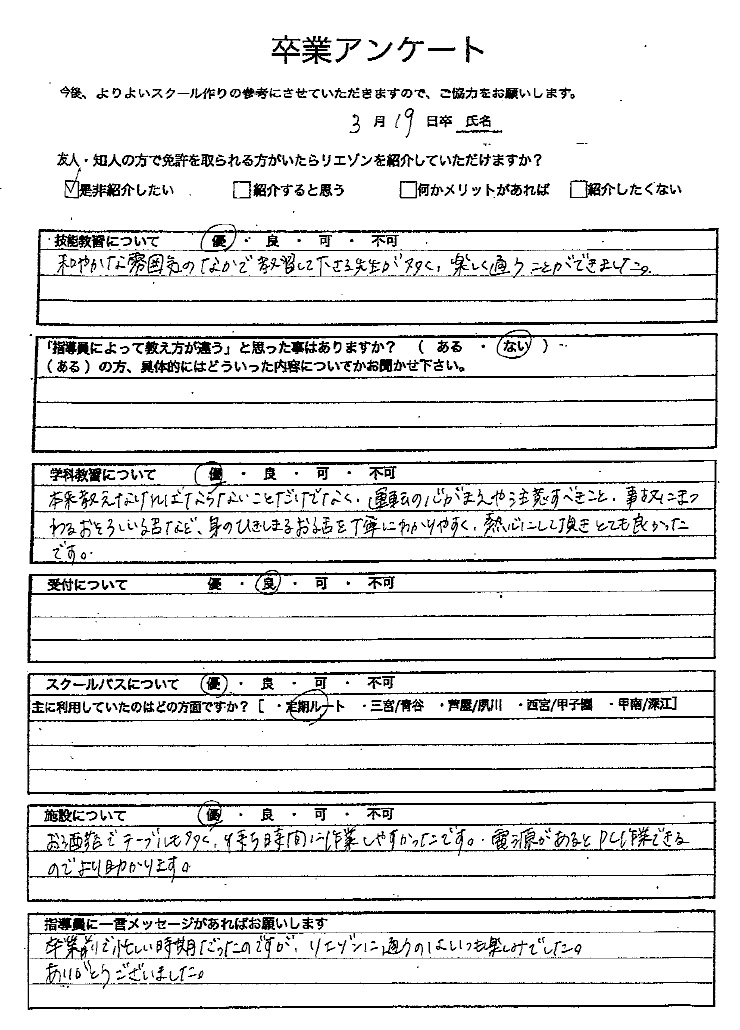 卒業アンケート
今後、よりよいスクール作りの参考にさせていただきますので、ご協力をお願いします。
3 月 19 日卒 氏名
友人・知人の方で免許を取られる方がいたらリエゾンを紹介していただけますか？
☑是非紹介したい □紹介すると思う □何かメリットがあれば □紹介したくない
技能教習について 優 ・ 良 ・ 可 ・ 不可
和やかな雰囲気のなかで教習して下さる先生が多く、楽しく通うことができました。
「指導員によって教え方が違う」と思った事はありますか？ （ ある ・ ない ）
（ある）の方、具体的にはどういった内容についてかお聞かせ下さい。
学科教習について 優 ・ 良 ・ 可 ・ 不可
本来教えなければならないことだけでなく、運転の心がまえや注意すべきこと、事故にまつ
わるおそろしい話など、身のひきしまるお話を丁寧にわかりやすく、熱心にして頂きとても良かった
です。
受付について 優 ・ 良 ・ 可 ・ 不可
スクールバスについて 優 ・ 良 ・ 可 ・ 不可
主に利用していたのはどの方面ですか？［ ・定期ルート ・三宮/青谷 ・芦屋/夙川 ・西宮/甲子園 ・甲南/深江］
施設について 優 ・ 良 ・ 可 ・ 不可
お洒落でテーブルも多く、待ち時間に作業しやすかったです。電源があるとPC作業できる
のでより助かります。
指導員に一言メッセージがあればお願いします
卒業前で忙しい時期だったのですが、リエゾンに通うのはいつも楽しみでした。
ありがとうございました。